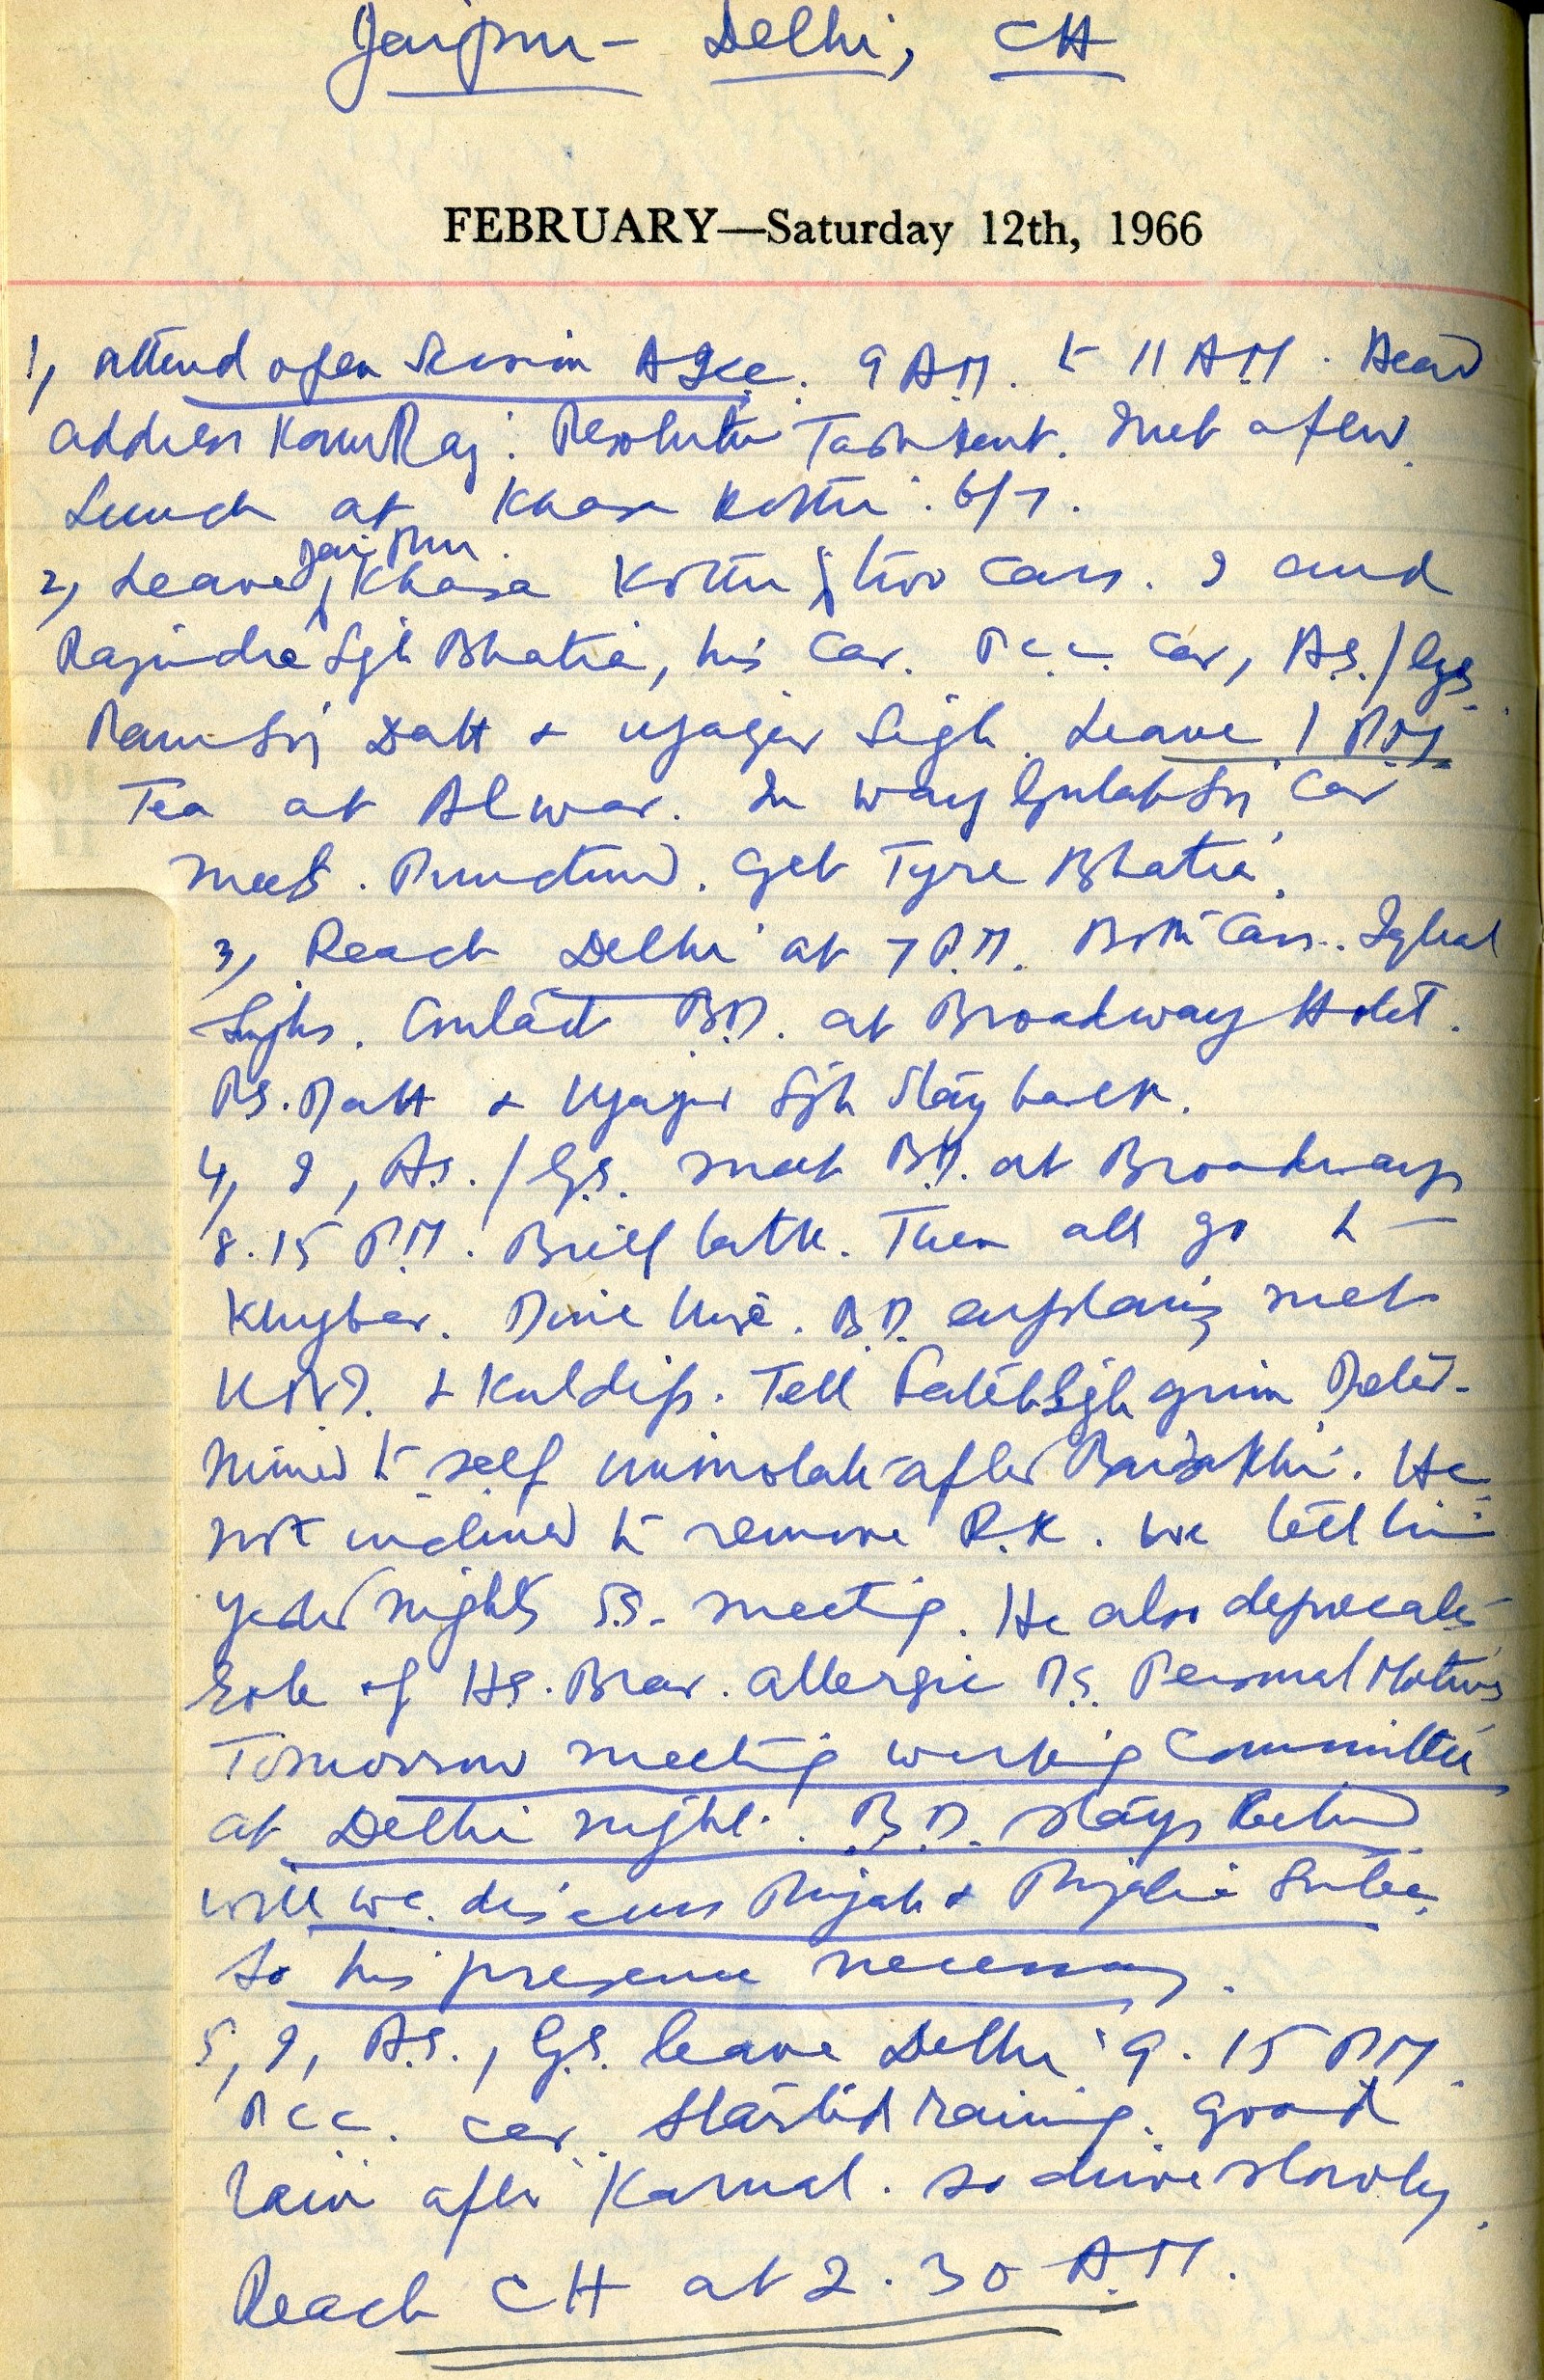 Jaipur - Delhi, CH
FEBRUARY—Saturday 12th, 1966
1, Attend open Session AICC. 9 AM. to 11 AM. Heard
address KamRaj. Resolution Tashkent. Met a few.
Lunch at Khasa Kothi. 6/7.
Jaipur.
2, Leave Khasa Kothi two cars. I and
Rajindra Sgh Bhatia, his car. P.C.C. Car, A.S./G.S.
Ram Datt & Ujagar Singh. Leave 1 P.M.
Tea at Alwar. In way car
meet. Punctured. Get Tyre Bhatia.
3, Reach Delhi at 7 P.M. Both Cars. Iqbal
Singhs. Contact B.D. at Broadway Hotel.
R.S. Datt & Ujagar Sgh stay back.
4, I, A.S./G.S. meet B.D. at Broadway
8.15 P.M. Brief talk. Then all go to
Khyber. Dine here. B.D. explains met
& Kuldip. Tell Fateh Sgh grim Deter-
mined to self immolate after Baisakhi. He
not inclined to remove R.K. We tell him
yesternights meeting. He also deprecates
role of H.S. Brar. Allergic Personal Motives
Tomorrow meeting working Committee
at Delhi night. B.D. stays behind
will W.C. discuss Punjab & Punjabi Suba.
So his presence necessary.
5, I, A.S., G.S. leave Delhi 9.15 PM.
P.C.C. car. Started raining. Good
rain after Karnal. So drive slowly.
Reach CH at 2.30 A.M.